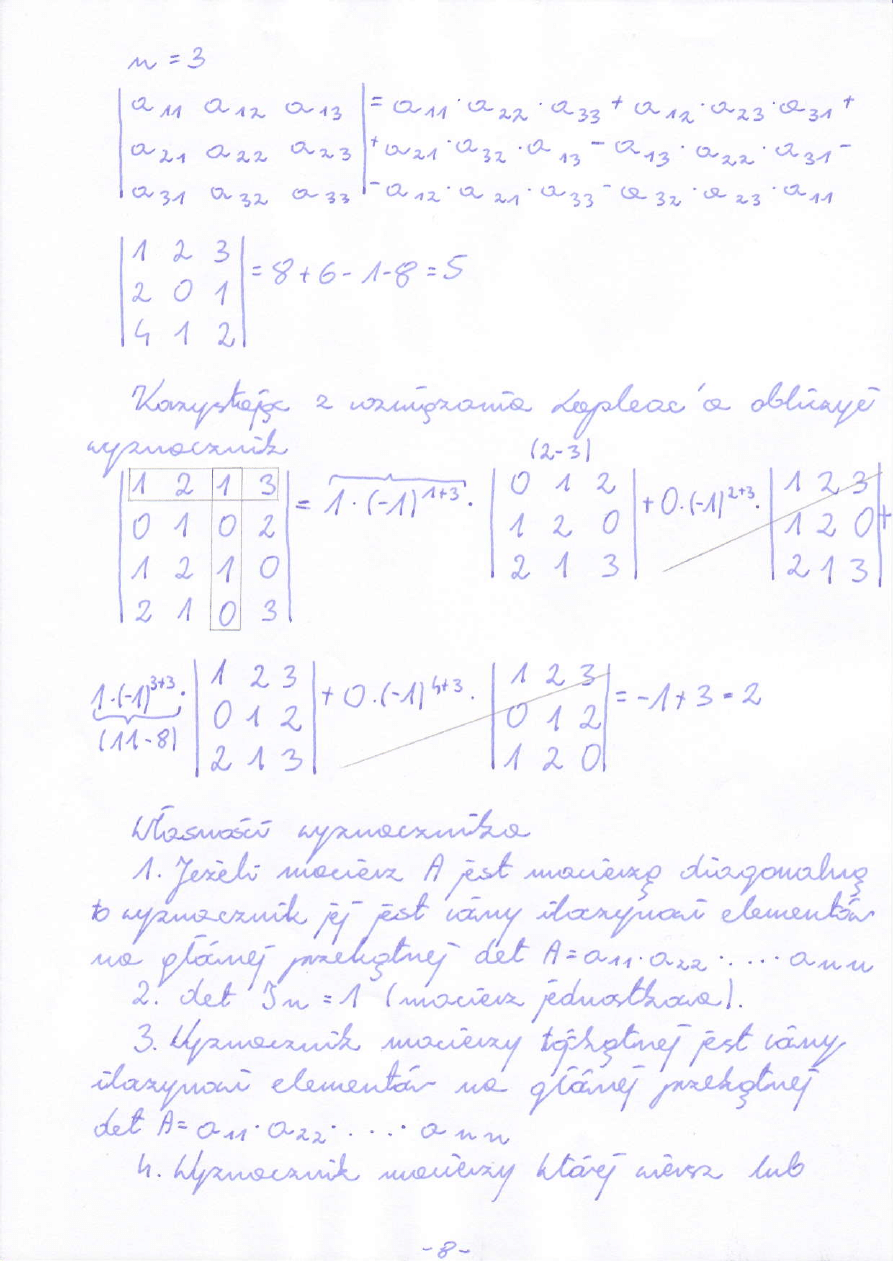 n = 3
| a11 a12 a13 | = a11 · a22 · a33 + a12 · a23 · a31 +
| a21 a22 a23 | + a21 · a32 · a13 - a13 · a22 · a31 -
| a31 a32 a33 | - a12 · a21 · a33 - a32 · a23 · a11
| 1 2 3 |
| 2 0 1 | = 8 + 6 - 1 - 8 = 5
| 4 1 2 |
Korzystając z rozwiązania Lapleac'a obliczyć
wyznacznik
(2-3)
| 1 2 1 3 | = 1 · (-1)^1+3 · | 0 1 2 | + 0 · (-1)^2+3 · | 1 2 3 | +
| 0 1 0 2 | | 1 2 0 | | 1 2 0 |
| 1 2 1 0 | | 2 1 3 | | 2 1 3 |
| 2 1 0 3 |
1 · (-1)^3+3 · | 1 2 3 | + 0 · (-1)^4+3 · | 1 2 3 | = -1 + 3 = 2
(11-8) | 0 1 2 | | 0 1 2 |
| 2 1 3 | | 1 2 0 |
Własności wyznacznika
1. Jeżeli macierz A jest macierzą diagonalną
to wyznacznik jej jest równy iloczynowi elementów
na głównej przekątnej det A = a11 · a22 · ... · ann
2. det Jn = 1 (macierz jednostkowa).
3. Wyznacznik macierzy trójkątnej jest równy
iloczynowi elementów na głównej przekątnej
det A = a11 · a22 · ... · ann
4. Wyznacznik macierzy której wiersz lub
-8-